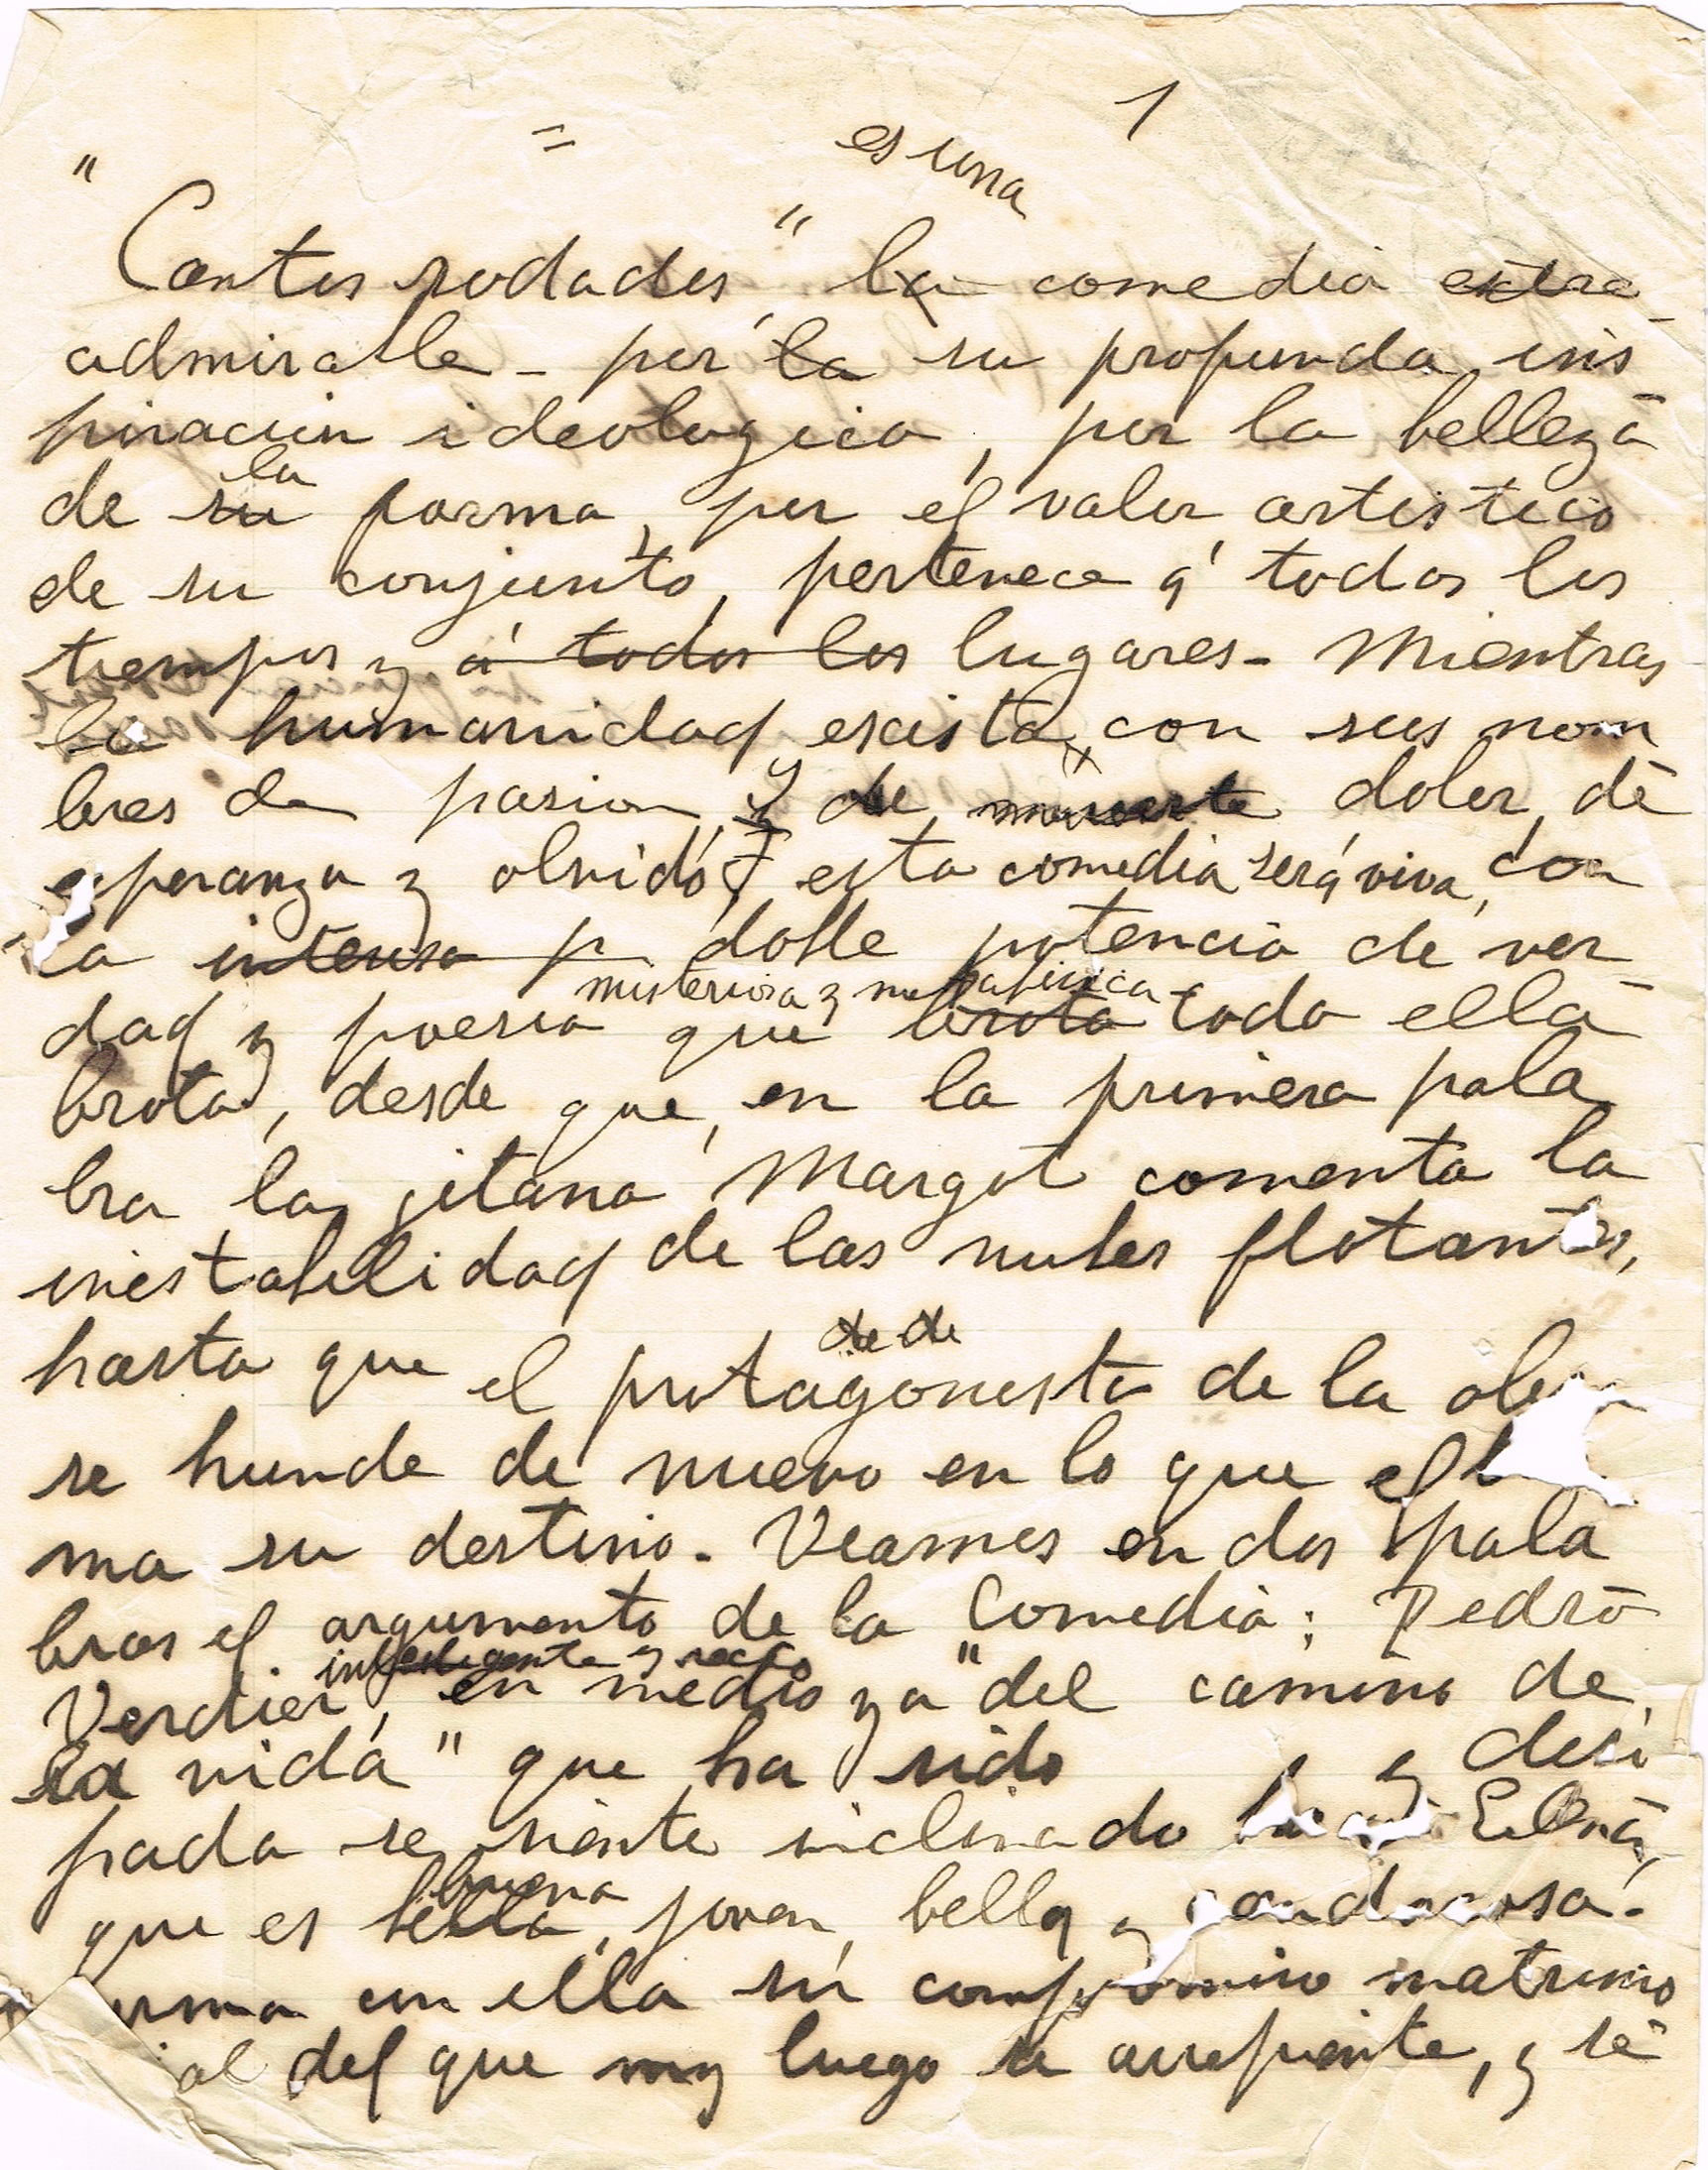 1
= es una
"Cantos rodados" la comedia extra-
admirable - por la su profunda ins
piracion ideologica, por la belleza
de su la forma, y por el valor artistico
de su conjunto, pertenece á todos los
tiempos y á todos los lugares - Mientras
la humanidad exista, con sus nom
bres de pasion, y de muerte dolor, de
esperanza y olvido, esta comedia será viva, con
la intensa p doble potencia de ver-
misteriosa y metafisica
dad y poesia que brota toda ella
brota, desde que, en la primera pala
bra la jitana Margot comenta la
inestabilidad de las nubes flotantes,
de de
hasta que el protagonista de la obra
se hunde de nuevo en lo que el
ma su destino. Veamos en dos pala
bras el argumento de la Comedia: Pedro
inteligente y recto
Verdier, en medio ya "del camino de
la vida" que ha sido y disi
pada se siente inclinado Elena,
buena
que es bella, joven, bella y candorosa.
un ella su compromiso matrimo
ial del que muy luego se arrepiente, y se